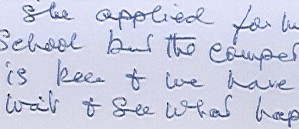 she applied for
School but the compet
is keen & we have
wait & see what hap